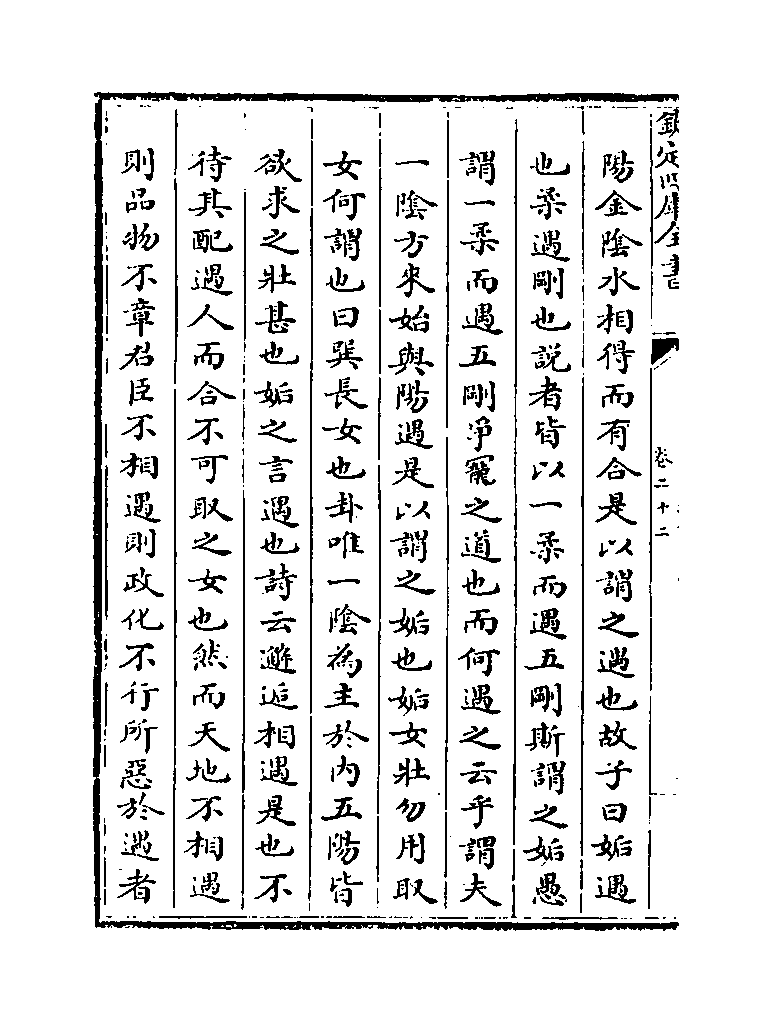 欽定四庫全書
卷二十二
陽金陰水相得而有合是以謂之遇也故子曰姤遇
也柔遇剛也説者皆以一柔而遇五剛斯謂之姤愚
謂一柔而遇五剛淨寵之道也而何遇之云乎謂夫
一陰方來始與陽遇是以謂之姤也姤女壯勿用取
女何謂也曰巽長女也卦唯一陰為主於内五陽皆
欲求之壯甚也姤之言遇也詩云邂逅相遇是也不
待其配遇人而合不可取之女也然而天地不相遇
則品物不章君臣不相遇則政化不行所惡於遇者